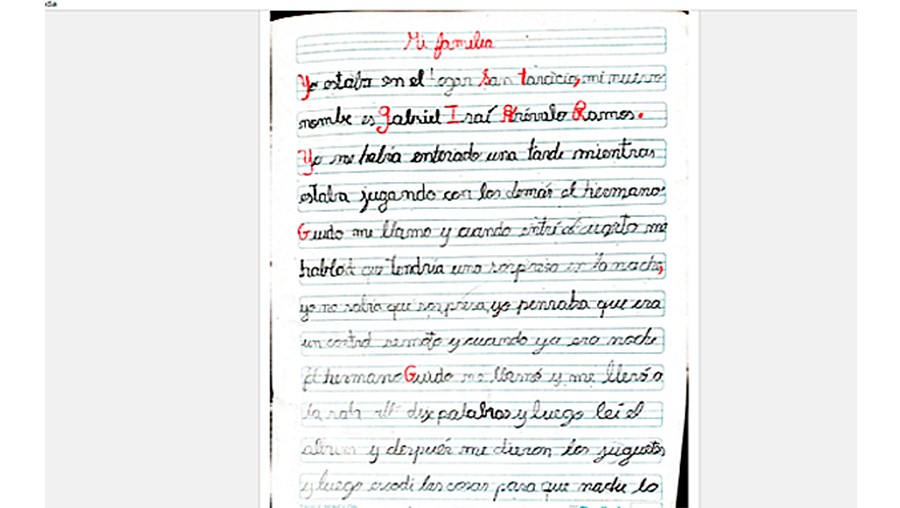 Mi familia
Yo estaba en el ogar San tarcicio, mi nuevo
nombre es gabriel Iraí Arévalo Ramos.
Yo me había enterado una tarde mientras
estaba jugando con los demás el hermano
Guido me llamo y cuando entré al cuarto me
hablo que tendría una sorpresa en la noche,
yo no sabía que sorpresa, yo pensaba que era
un control remoto y cuando ya era noche
el hermano Guido me llamó y me llevó a
la sala dije palabras y luego leí el
album y después me dieron los juguetes
y luego escodi las cosas para que nadie lo